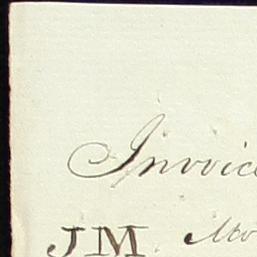 Invoice
JM Mo